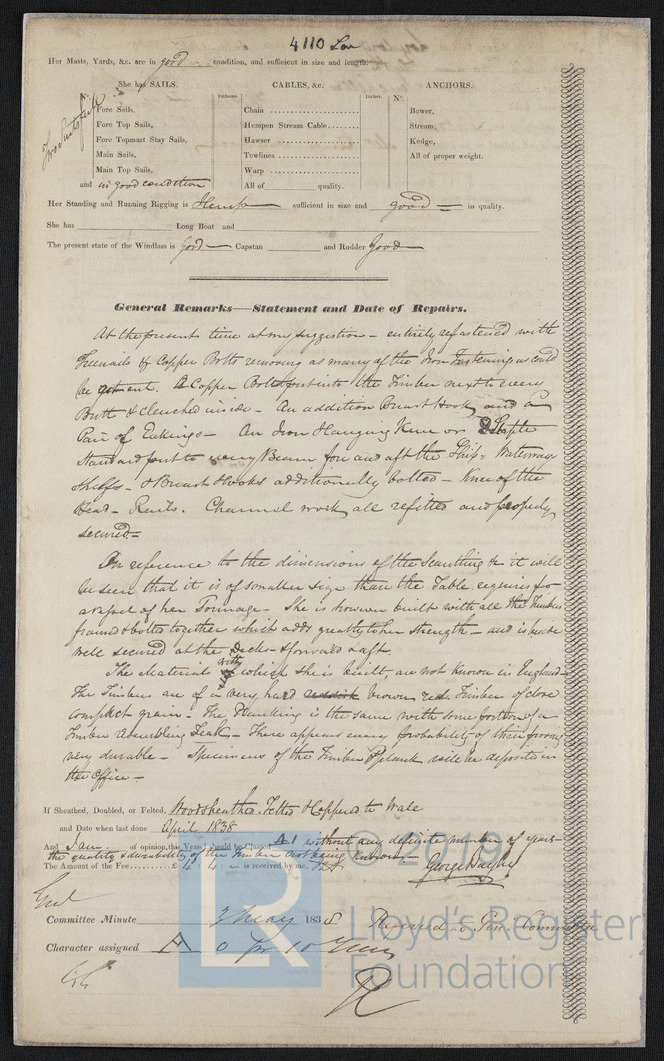 4110 Lon
Her Masts, Yards, &c. are in good condition, and sufficient in size and length.
She has SAILS.
CABLES, &c.
ANCHORS.
N°.
Fathoms.
Inches.
N°.
Two suits full
Fore Sails,
Fore Top Sails,
Fore Topmast Stay Sails,
Main Sails,
Main Top Sails,
and in good condition
Chain
Hempen Stream Cable
Hawser
Towlines
Warp
All of quality.
Bower,
Stream,
Kedge,
All of proper weight.
Her Standing and Running Rigging is Hemp sufficient in size and good in quality.
She has Long Boat and
The present state of the Windlass is good Capstan and Rudder good
General Remarks—Statement and Date of Repairs.
At the present time at my suggestion - entirely refastened with
Treenails & Copper Bolts removing as many of the Iron Fastenings as could
be got out. A Copper Bolt put into the Timber next to every
Butt & clenched inside - An addition Breast Hook and a
Pair of - An Iron Hanging Knee or Staple
Standard put to every Beam fore and aft the Ship. Waterways
Shelfs - & Breast Hooks additionally bolted - Knee of the
Head - Rails. Channel work all refitted and properly
secured -
On reference to the dimensions of the Scantling &c it will
be seen that it is of smaller size than the Table requires for
a vessel of her Tonnage - She is however built with all the Timbers
framed & bolted together which adds greatly to her strength - and is
well secured at the Decks - & forward & aft
The Material with which she is built, are not known in England -
The Timbers are of a very hard brown red Timber of close
compact grain - The Planking is the same with some portion of a
Timber resembling Teak - There appears every probability of their proving
very durable - Specimens of the Timber & plank will be deposited in
the Office -
If Sheathed, Doubled, or Felted, Woodsheathed. Felted & Coppered to Wale
and Date when last done April 1838
And I am of opinion, this Vessel should be Classed A1 without any definite number of years -
the quality & durability of the Timber not being known -
The Amount of the Fee £ 4 is received by me,
George Bayley
Committee Minute 3 May 1838 Referred to Genl Committee
Character assigned A 0 for 10 Years
© 2019
LR
Lloyd's Register
Foundation